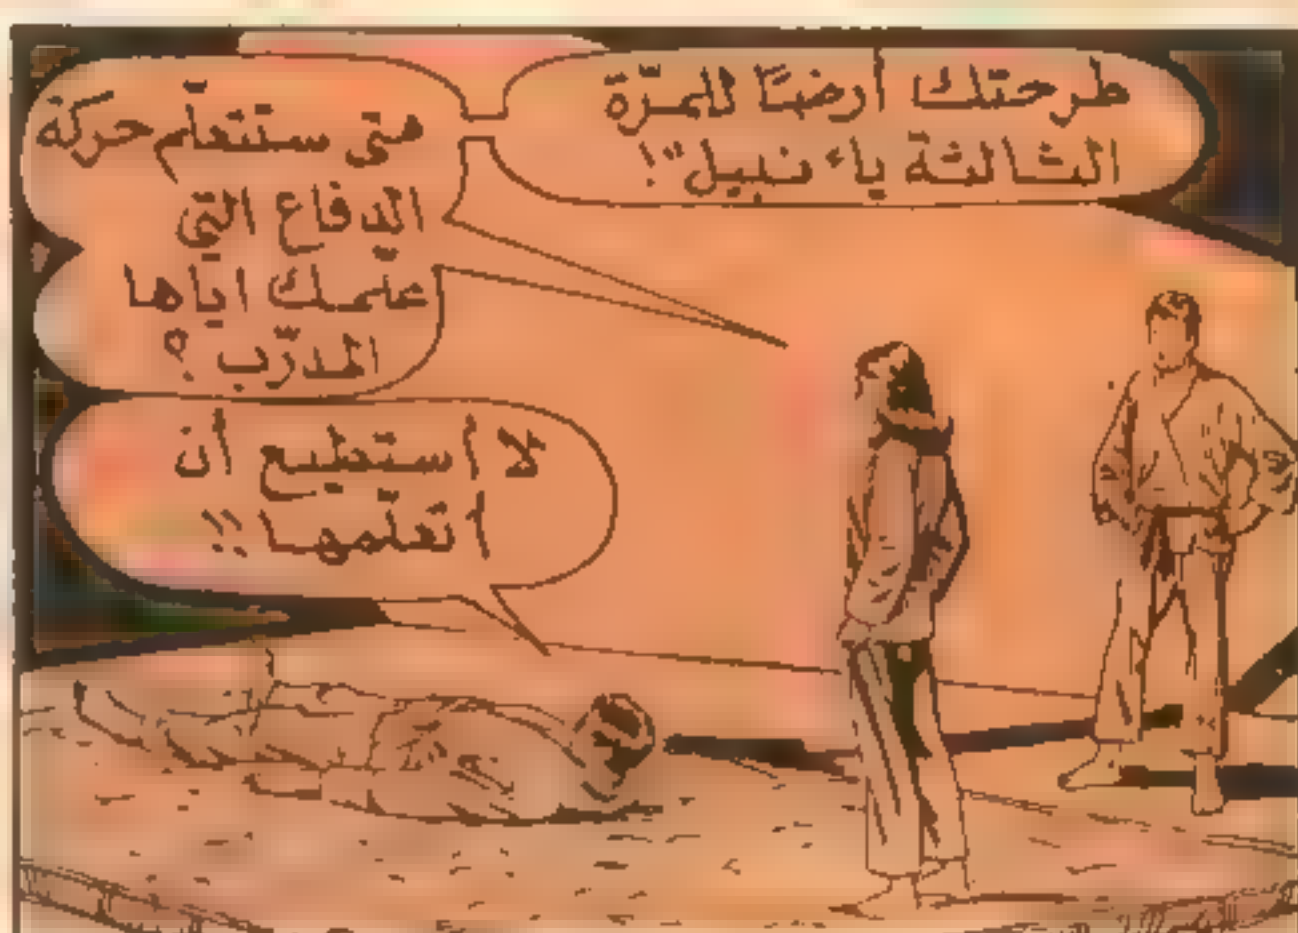 طرحتك أرضًا للمرّة
الثالثة يا "نبيل"!
متى ستتعلّم حركة
الدفاع التي
علّمك اياها
المدرّب ؟
لا أستطيع أن
أتعلّمها !!